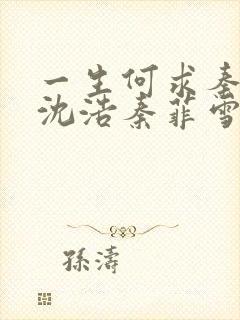 一生何求秦
沈浩秦菲雪
孫濤